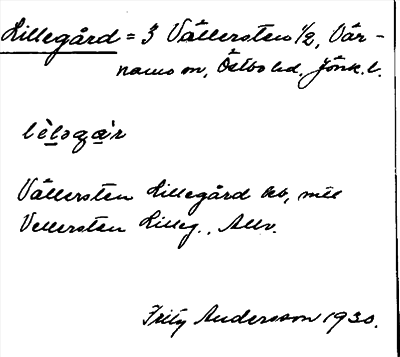 Lillegård = 3 Vällersten 1/2, Vär-
namo sn, Östbo hd. Jönk. l.
Vällersten Lillegård
Vellersten Lilleg., Allv.
Fritz Andersson 1930.